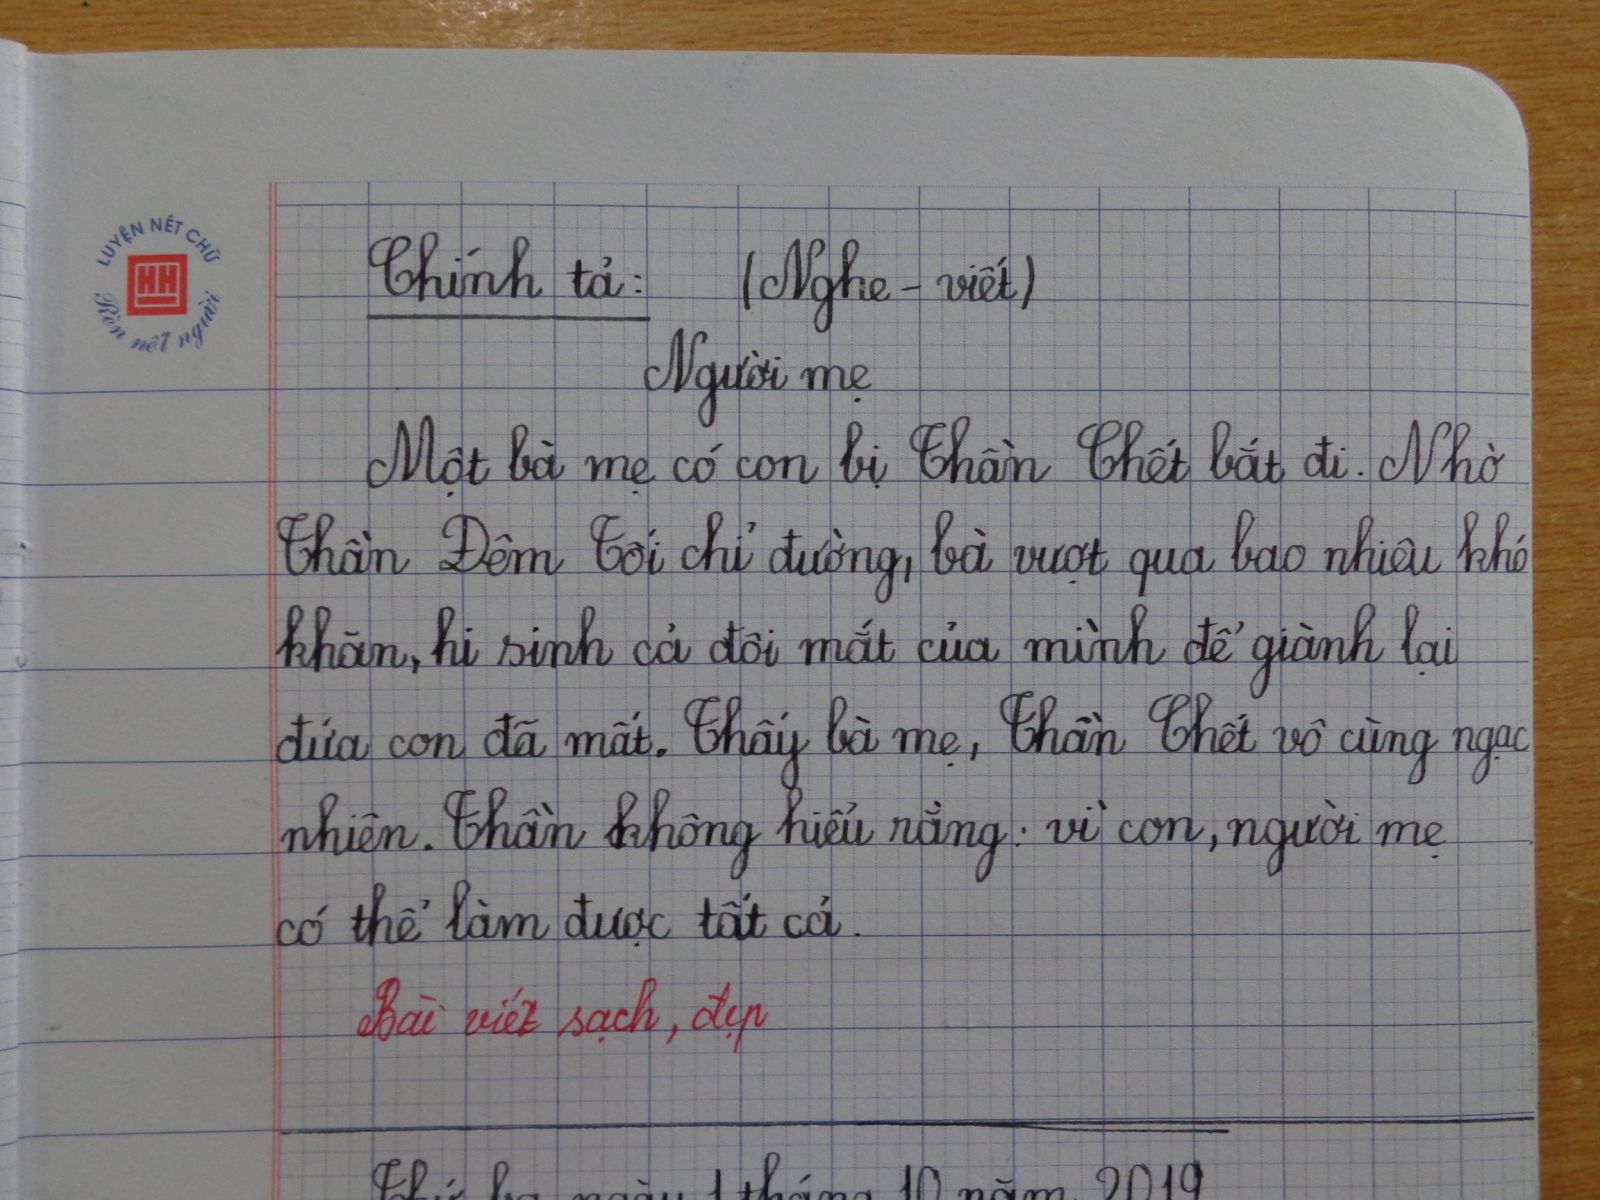 LUYỆN NÉT CHỮ
HH
Rèn nết người
Chính tả: (Nghe - viết)
Người mẹ
Một bà mẹ có con bị Thần Chết bắt đi. Nhờ
Thần Đêm Tối chỉ đường, bà vượt qua bao nhiêu khó
khăn, hi sinh cả đôi mắt của mình để giành lại
đứa con đã mất. Thấy bà mẹ, Thần Chết vô cùng ngạc
nhiên. Thần không hiểu rằng: vì con, người mẹ
có thể làm được tất cả.
Bài viết sạch, đẹp
Thứ ba ngày 1 tháng 10 năm 2019